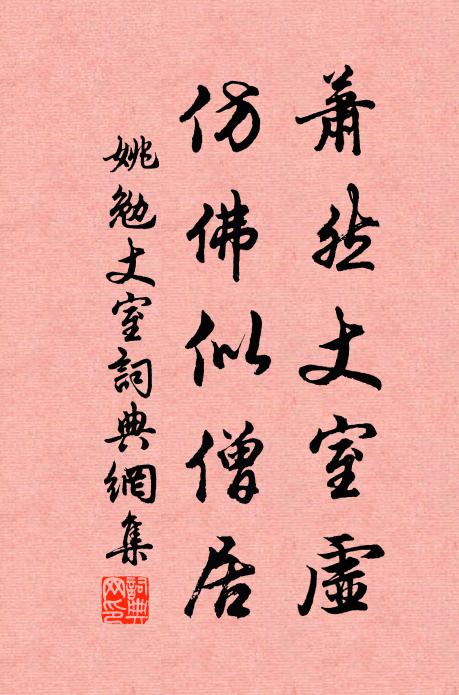 蕭然丈室虛
仿佛似僧居
姚勉丈室詞典網集
詞典网印